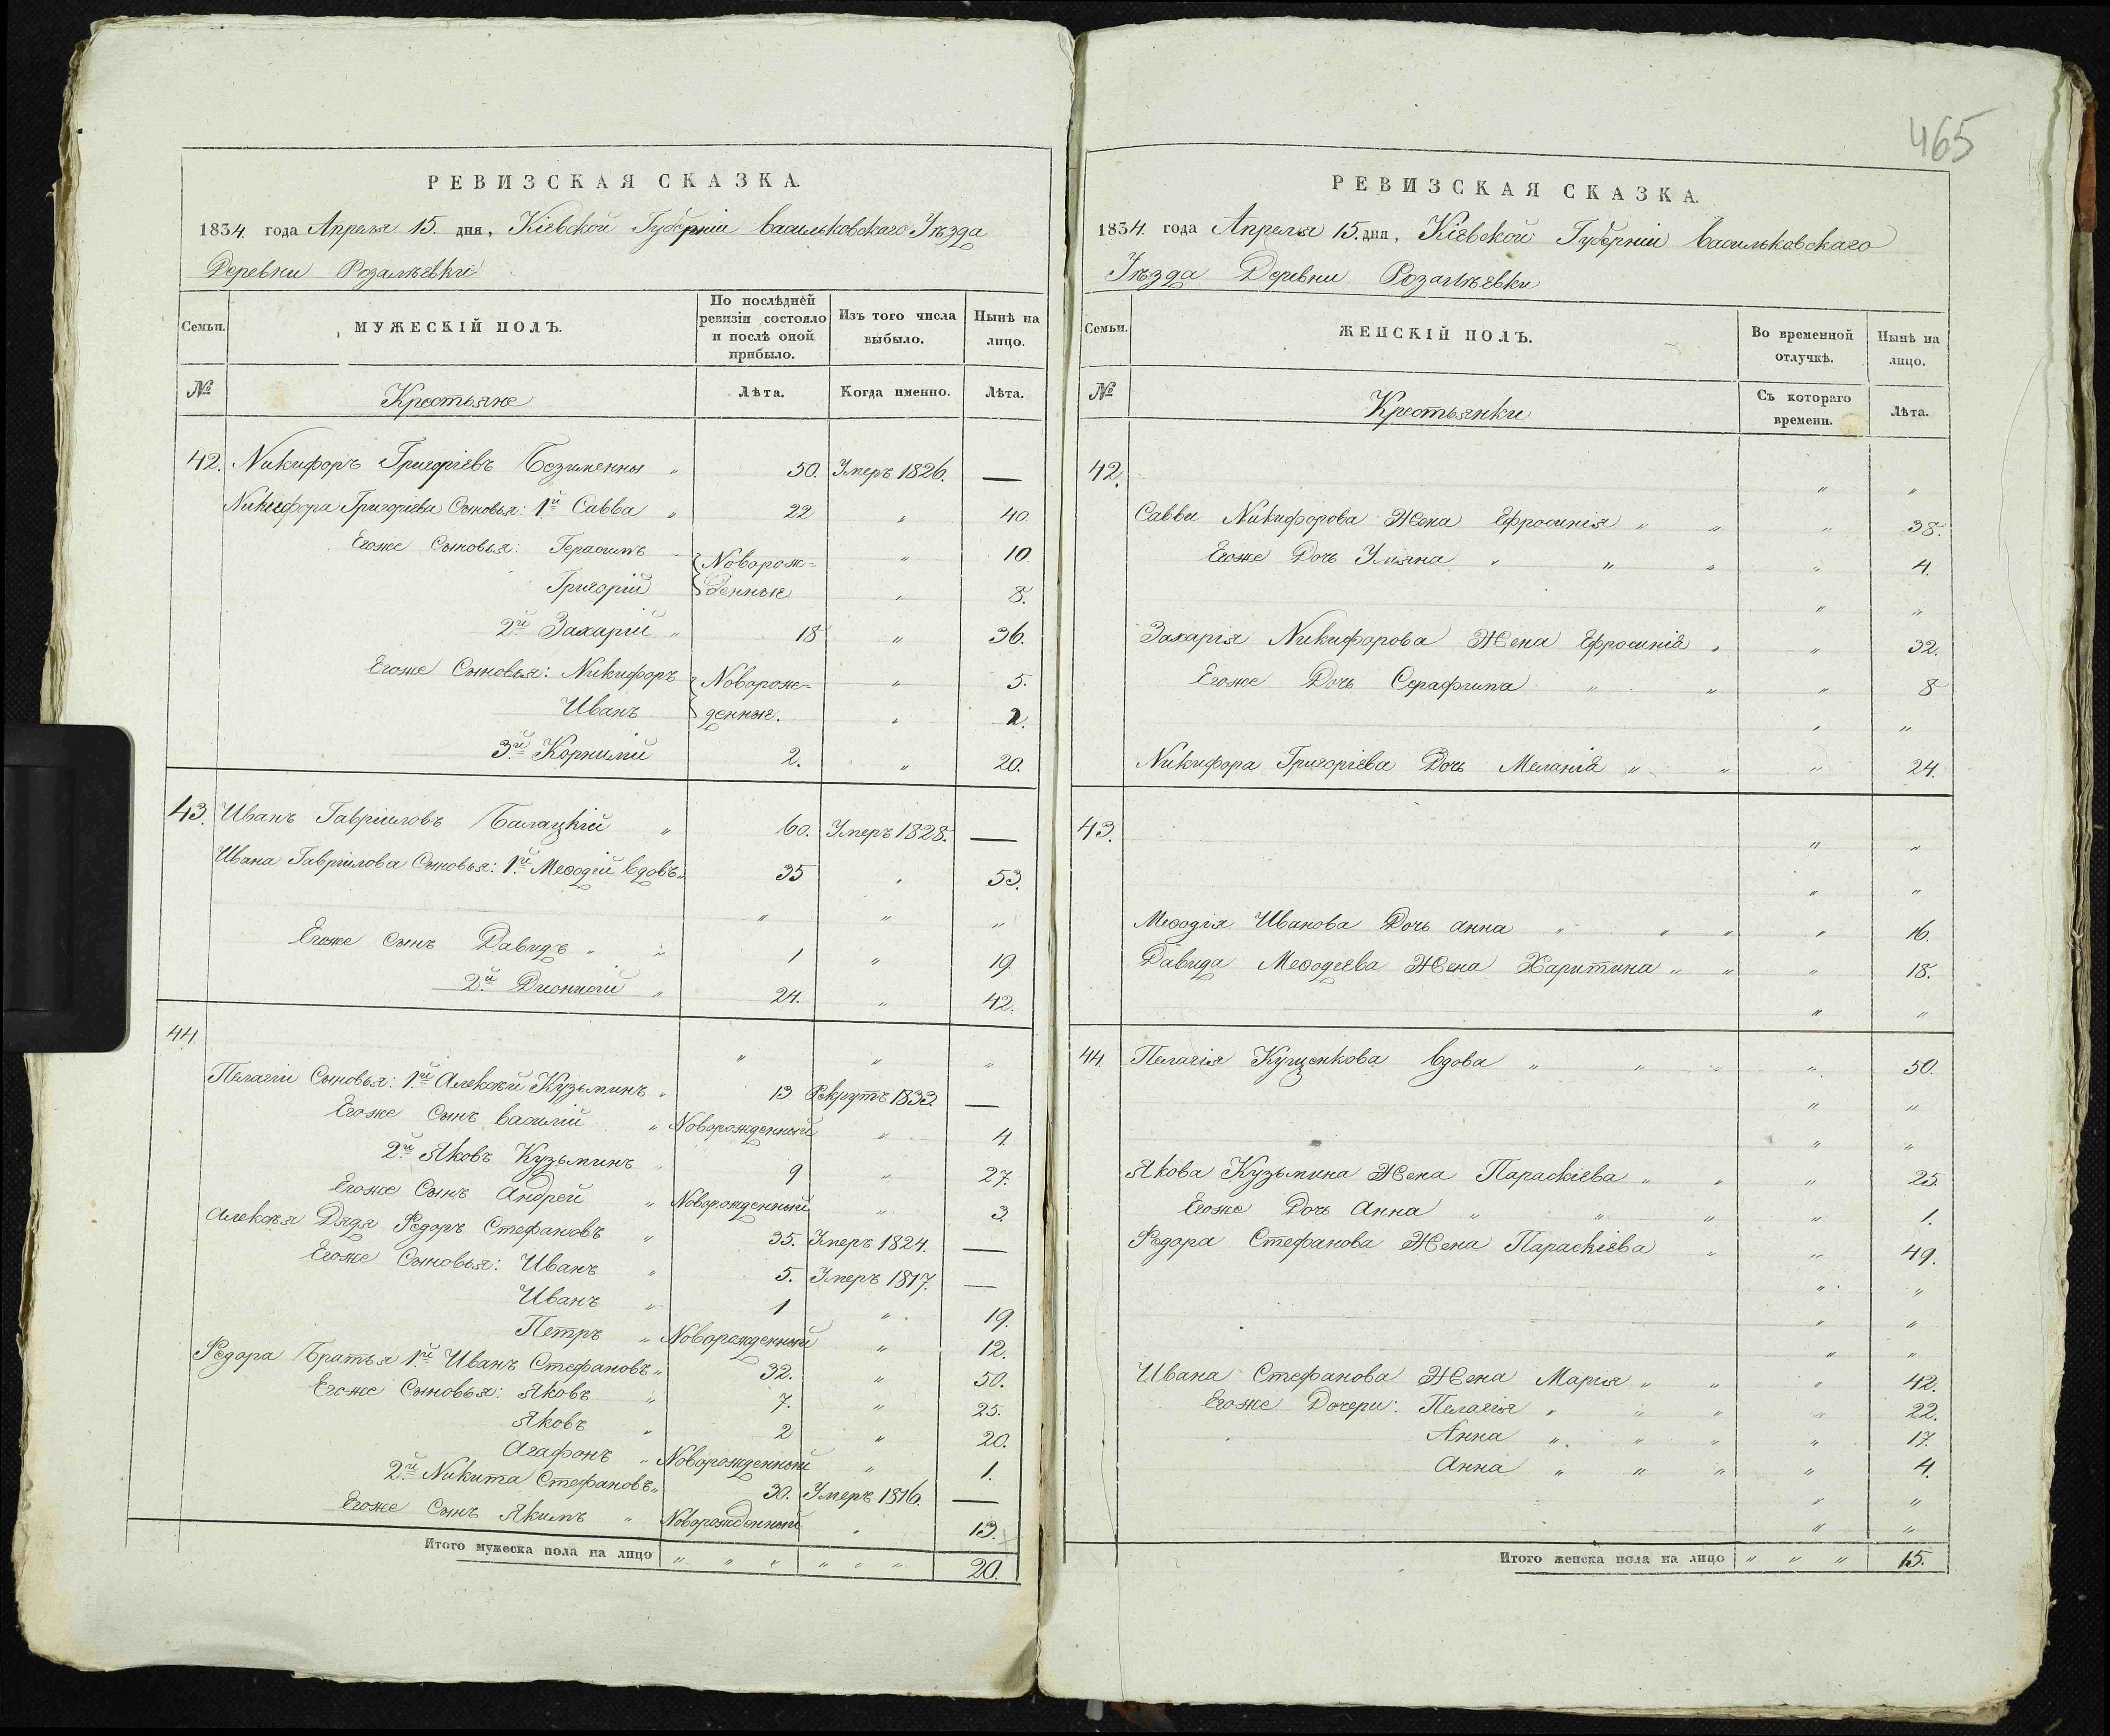 РЕВИЗСКАЯ СКАЗКА.
1834. года Апреля 15. дня, Кіевской Губерніи Васильковскаго Уѣзда
Деревни Розалѣевки
Семьи. МУЖЕСКІЙ ПОЛЪ. По послѣдней ревизіи состояло и послѣ оной прибыло. Изъ того числа выбыло. Нынѣ на лицо.
№ Крестьяне Лѣта. Когда именно. Лѣта.
42. Никифоръ Григоріевъ Безименны " 50. Умеръ 1826. —
Никифора Григоріева Сыновья: 1й Савва " 22 " 40
Егоже Сыновья: Герасимъ Новорож= " 10
Григорій денные " 8.
2й Захарій " 18 " 36.
Егоже Сыновья: Никифоръ Новорож= " 5.
Иванъ денные. " 2.
3й Корнилій 2. " 20.
43. Иванъ Гавріиловъ Балацкій " 60. Умеръ 1828. —
Ивана Гавріилова Сыновья: 1й Меѳодій вдовъ " 35 " 53.
" " "
Егоже сынъ Давидъ " " 1 " 19
2й Дионисій " 24. " 42.
44. " " "
Пелагіи Сыновья: 1й Алексѣй Кузьминъ " 13 Рекрутъ 1833. —
Егоже Сынъ Василій " Новорожденный " 4.
2й Яковъ Кузьминъ " 9 " 27.
Егоже Сынъ Андрей " Новорожденный " 3.
Алексѣя Дядя Федоръ Стефановъ " 35. Умеръ 1824. —
Егоже Сыновья: Иванъ " 5. Умеръ 1817. —
Иванъ " 1 " 19.
Петръ " Новорожденный " 12.
Федора Братья 1й Иванъ Стефановъ " 32. " 50.
Егоже Сыновья: Яковъ " 7. " 25.
Яковъ " 2 " 20.
Агафонъ " Новорожденный " 1.
2й Никита Стефановъ " 30. Умеръ 1816. —
Егоже Сынъ Якимъ " Новорожденный " 13.
Итого мужеска пола на лицо " " " " " " 20.
465
РЕВИЗСКАЯ СКАЗКА.
1834. года Апреля 15. дня, Кіевской Губерніи Васильковскаго
Уѣзда Деревни Розалѣевки
Семьи. ЖЕНСКІЙ ПОЛЪ. Во временной отлучкѣ. Нынѣ на лицо.
№ Крестьянки Съ котораго времени. Лѣта.
42. " "
Саввы Никифорова Жена Ефросинія " " " 38.
Егоже Дочь Уліяна " " " " 4.
" "
Захарія Никифорова Жена Ефросинія " " 32.
Егоже Дочь Серафима " " " 8
" "
Никифора Григоріева Дочь Меланія " " " 24.
43. " "
" "
Меѳодія Иванова Дочь Анна " " " " 16.
Давида Меѳодіева Жена Харитина " " " 18.
" "
44. Пелагія Куценкова вдова " " " " 50.
" "
" "
Якова Кузьмина Жена Параскіева " " " 25.
Егоже Дочь Анна " " " " 1.
Федора Стефанова Жена Параскіева " " 49.
" "
" "
" "
Ивана Стефанова Жена Марія " " " 42.
Егоже Дочери: Пелагія " " " " 22.
Анна " " " " 17.
Анна " " " " 4.
" "
" "
Итого женска пола на лицо " " " 15.